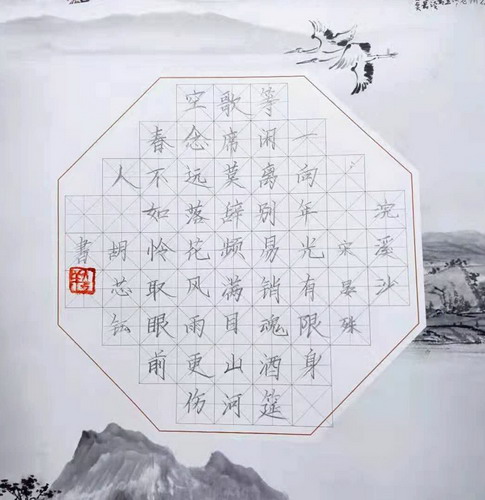 浣溪沙
宋 晏殊
一向年光有限身
等闲离别易销魂酒筵
歌席莫辞频满目山河
空念远落花风雨更伤
春不如怜取眼前
人 胡芯
书